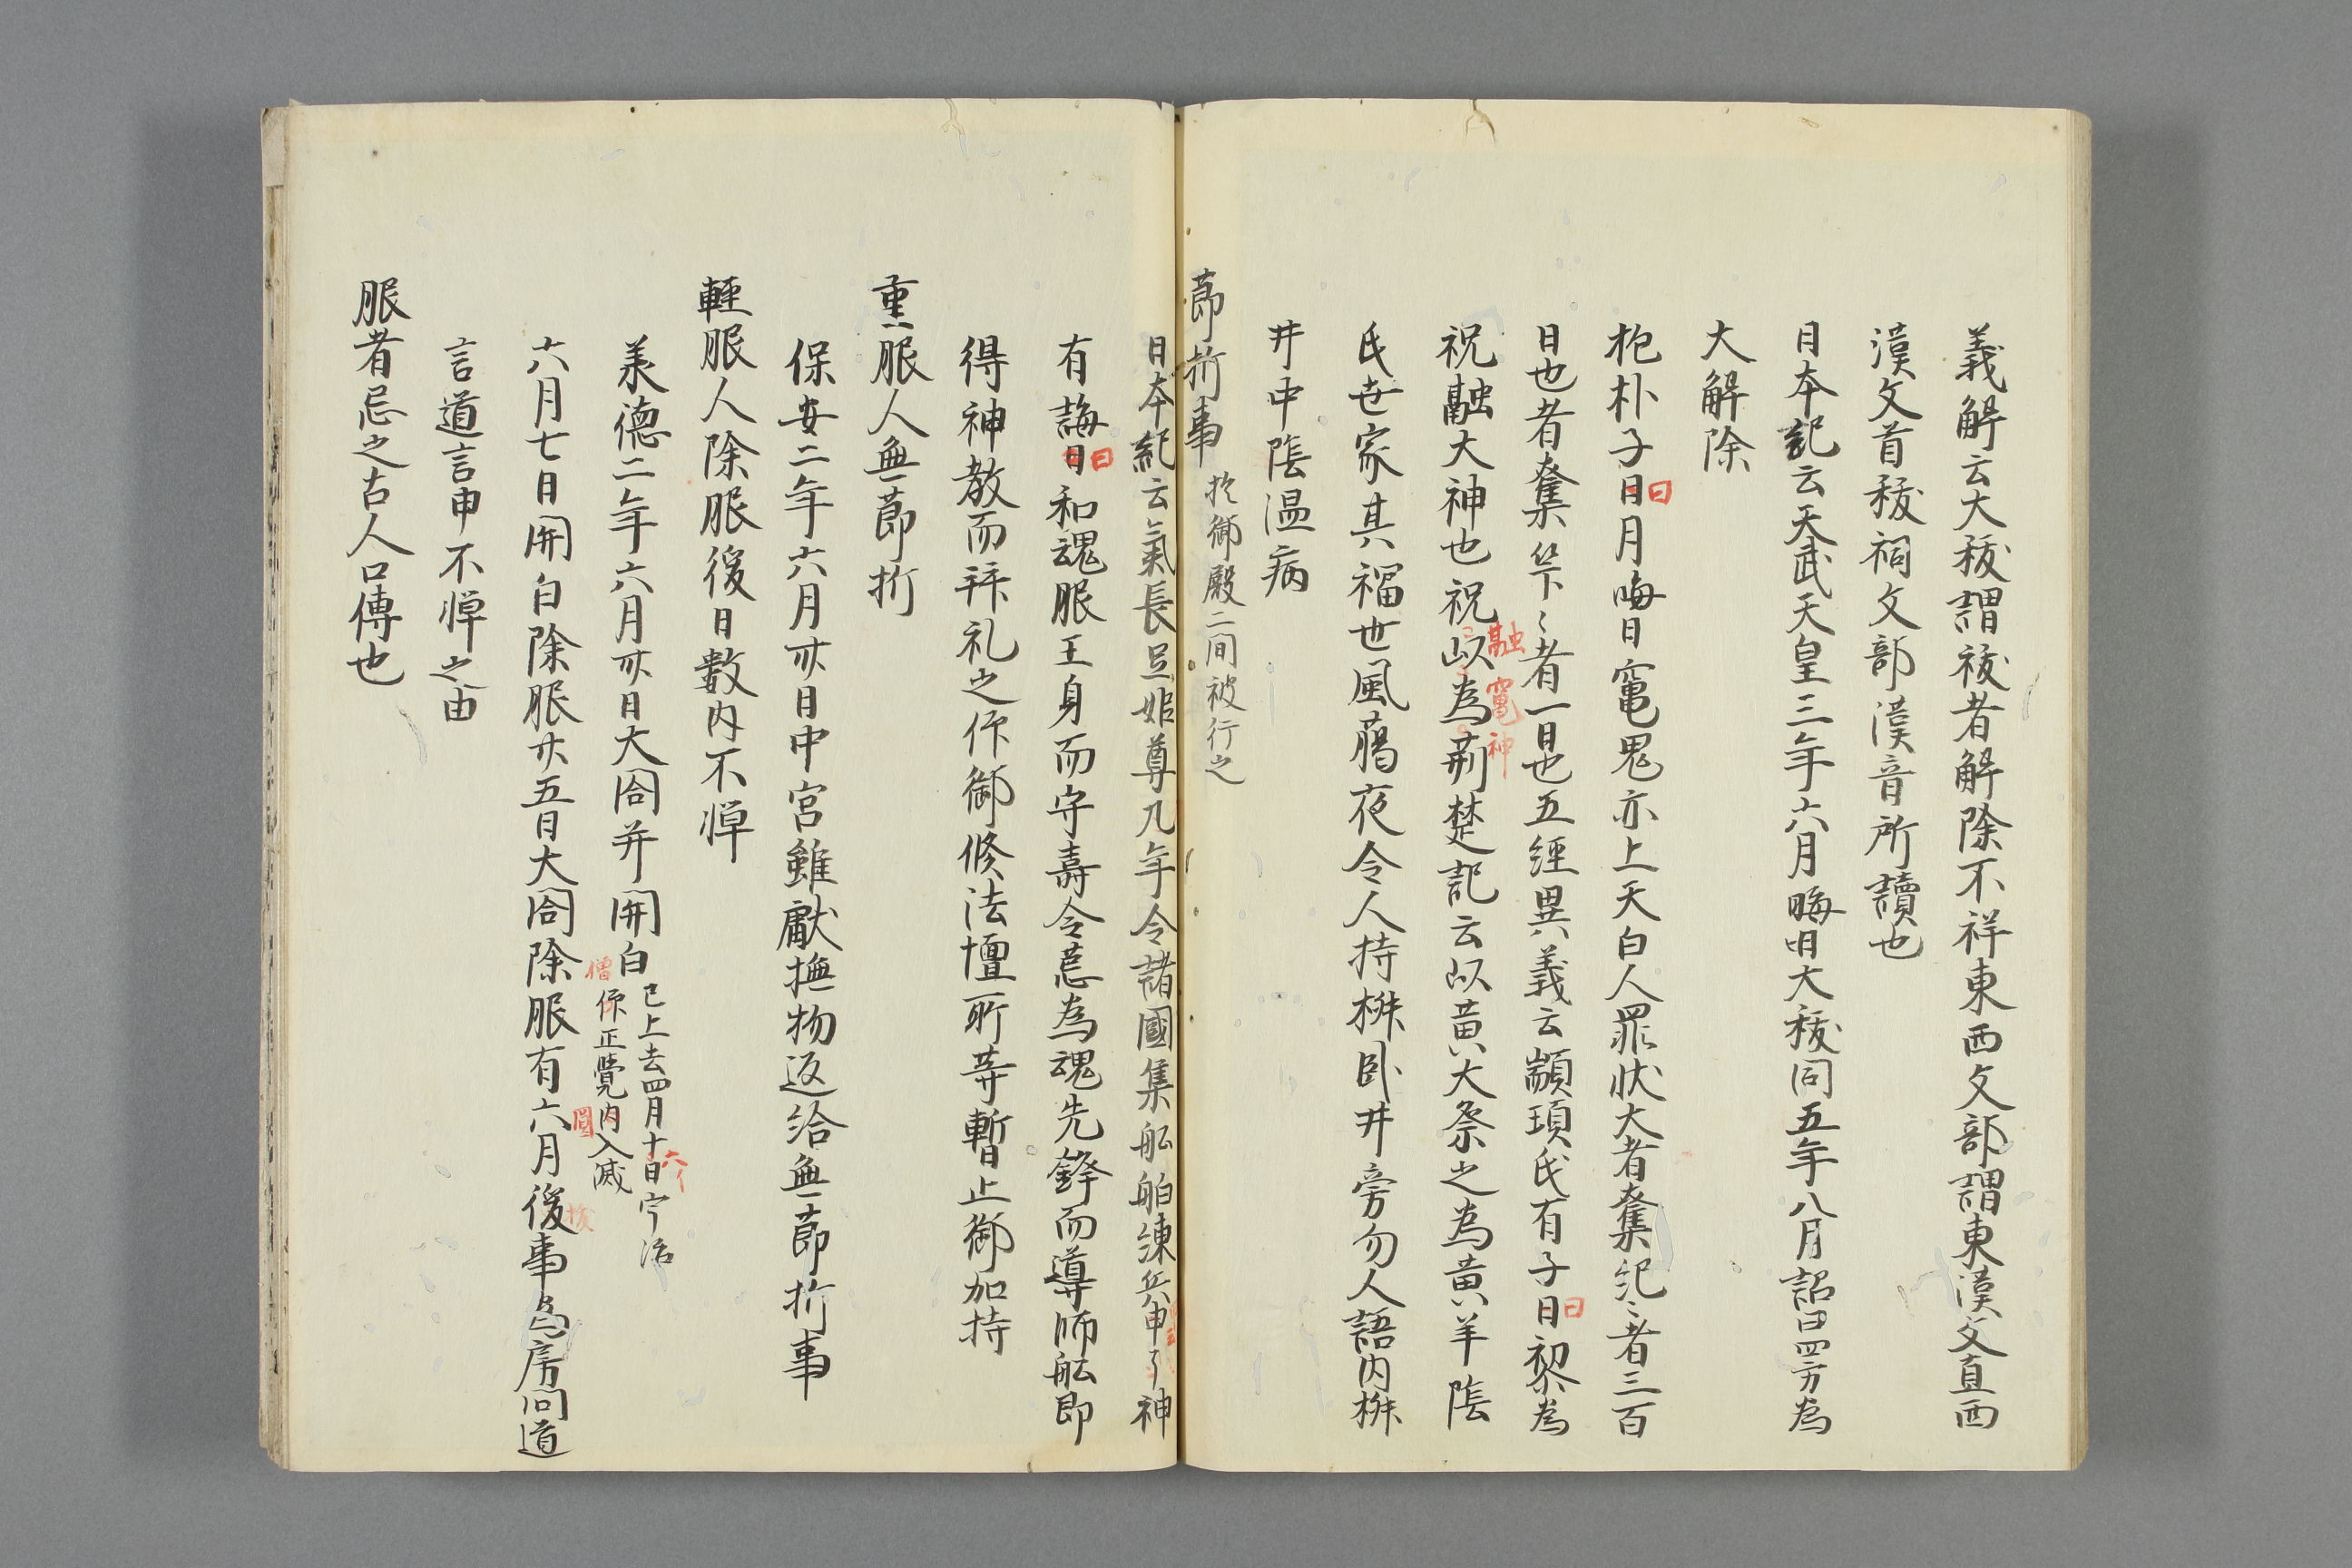 義解云大秡謂祓者解除不祥東西文部謂東漢文直西
漢文首秡祠文部漢音所讀也
日本記云天武天皇三年六月晦日大秡同五年八月詔曰四方為
大解除
抱朴子日月晦日竃鬼亦上天白人罪状大者奪紀〻者三百
曰
日也者奪䇳〻者一日也五經異義云顓頊氏有子日黎為
曰
祝融大神也祝以為荊楚記云以黄犬祭之為黄羊陰
融
竃神
氏世家其福世風﨟夜令人持椒卧井旁勿人語内椒
井中陰温病
莭折事 於御殿二間被行之
日本紀云氣長足姫尊九年令諸國集舩舶練兵申了神
有誨日和魂服王身而守壽令荒為魂先鋒而導師舩即
曰
得神教而拜礼之仰御修法壇所等暫止御加持
重服人無莭折
保安二年六月卅日中宮雖獻撫物返給無莭折事
輕服人除服後日數内不憚
羕德二年六月卅日大閤并開白
已上去四月十日宇治
六
僧
仰正覺内入滅
圓
六月七日開白除服廿五日大閤除服有六月後事為房問道
祓
言道言申不憚之由
服者忌之古人口傳也